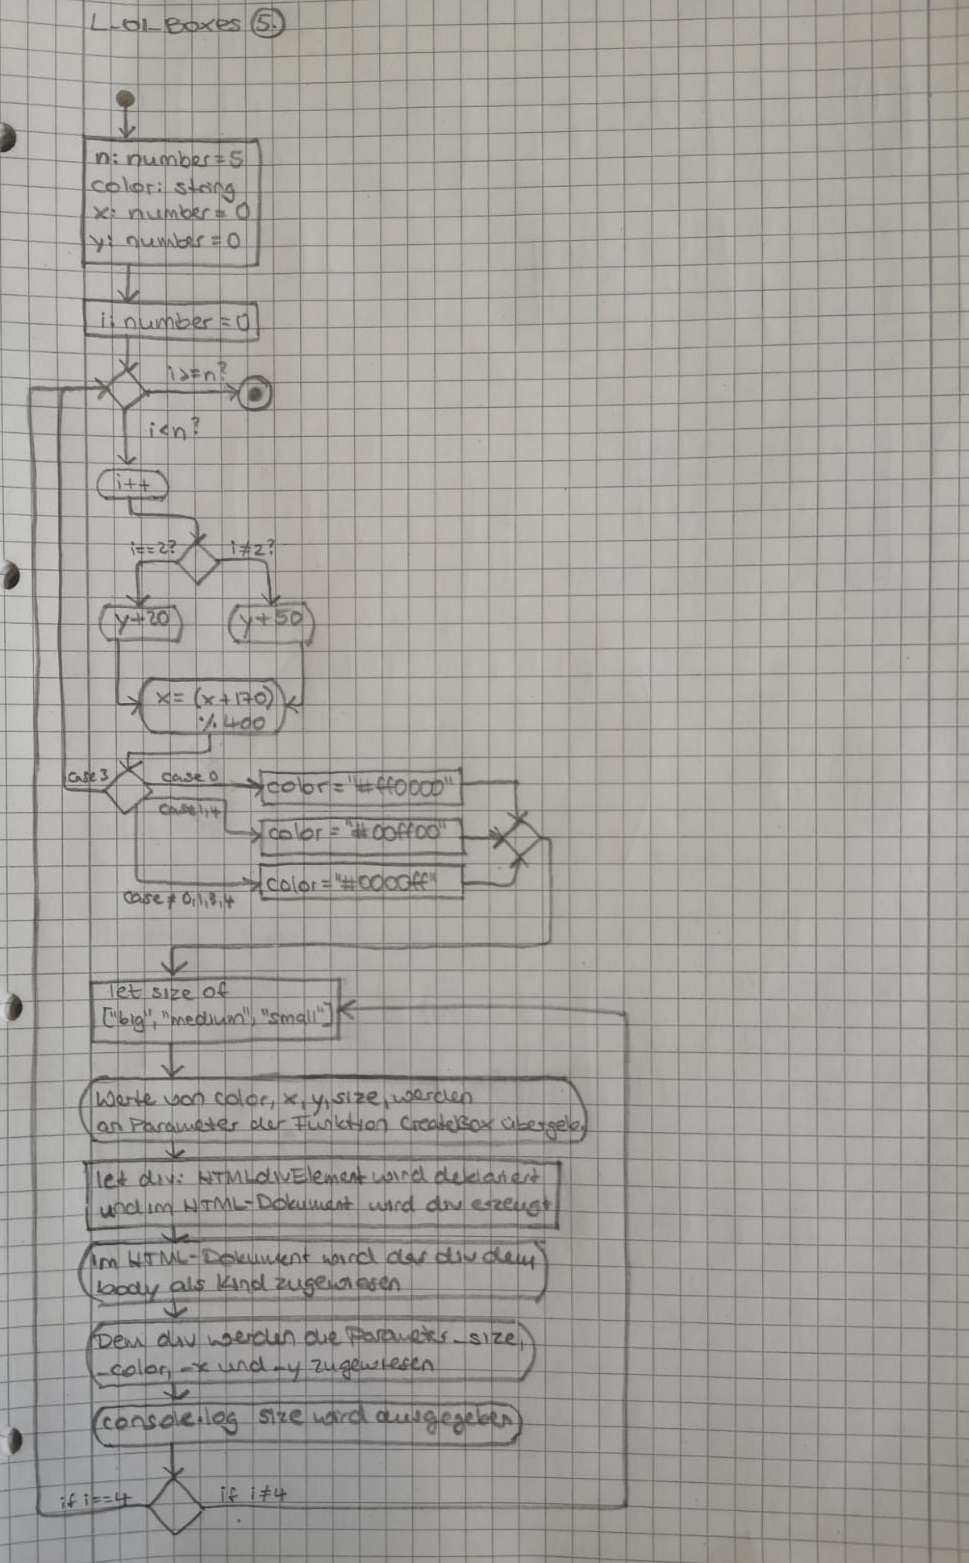 L01 Boxes 5.
n: number = 5
color: string
x: number = 0
y: number = 0
i: number = 0
i>=n?
i<n?
i++
i==2? i≠2?
y+20 y+50
x= (x+170)
% 400
case 3 case 0 color = "#ff0000"
case 1,4 color = "#00ff00"
color = "#0000ff"
case ≠ 0,1,3,4
let size of
["big", "medium", "small"]
Werte von color, x, y, size, werden
an Parameter der Funktion CreateBox übergeb.
let div: HTMLdivElement wird deklariert
und im HTML-Dokument wird div erzeugt
Im HTML-Dokument wird das div dem
body als Kind zugewiesen
Dem div werden die Parameter _size,
_color, _x und _y zugewiesen
console.log size wird ausgegeben
if i==4 if i≠4